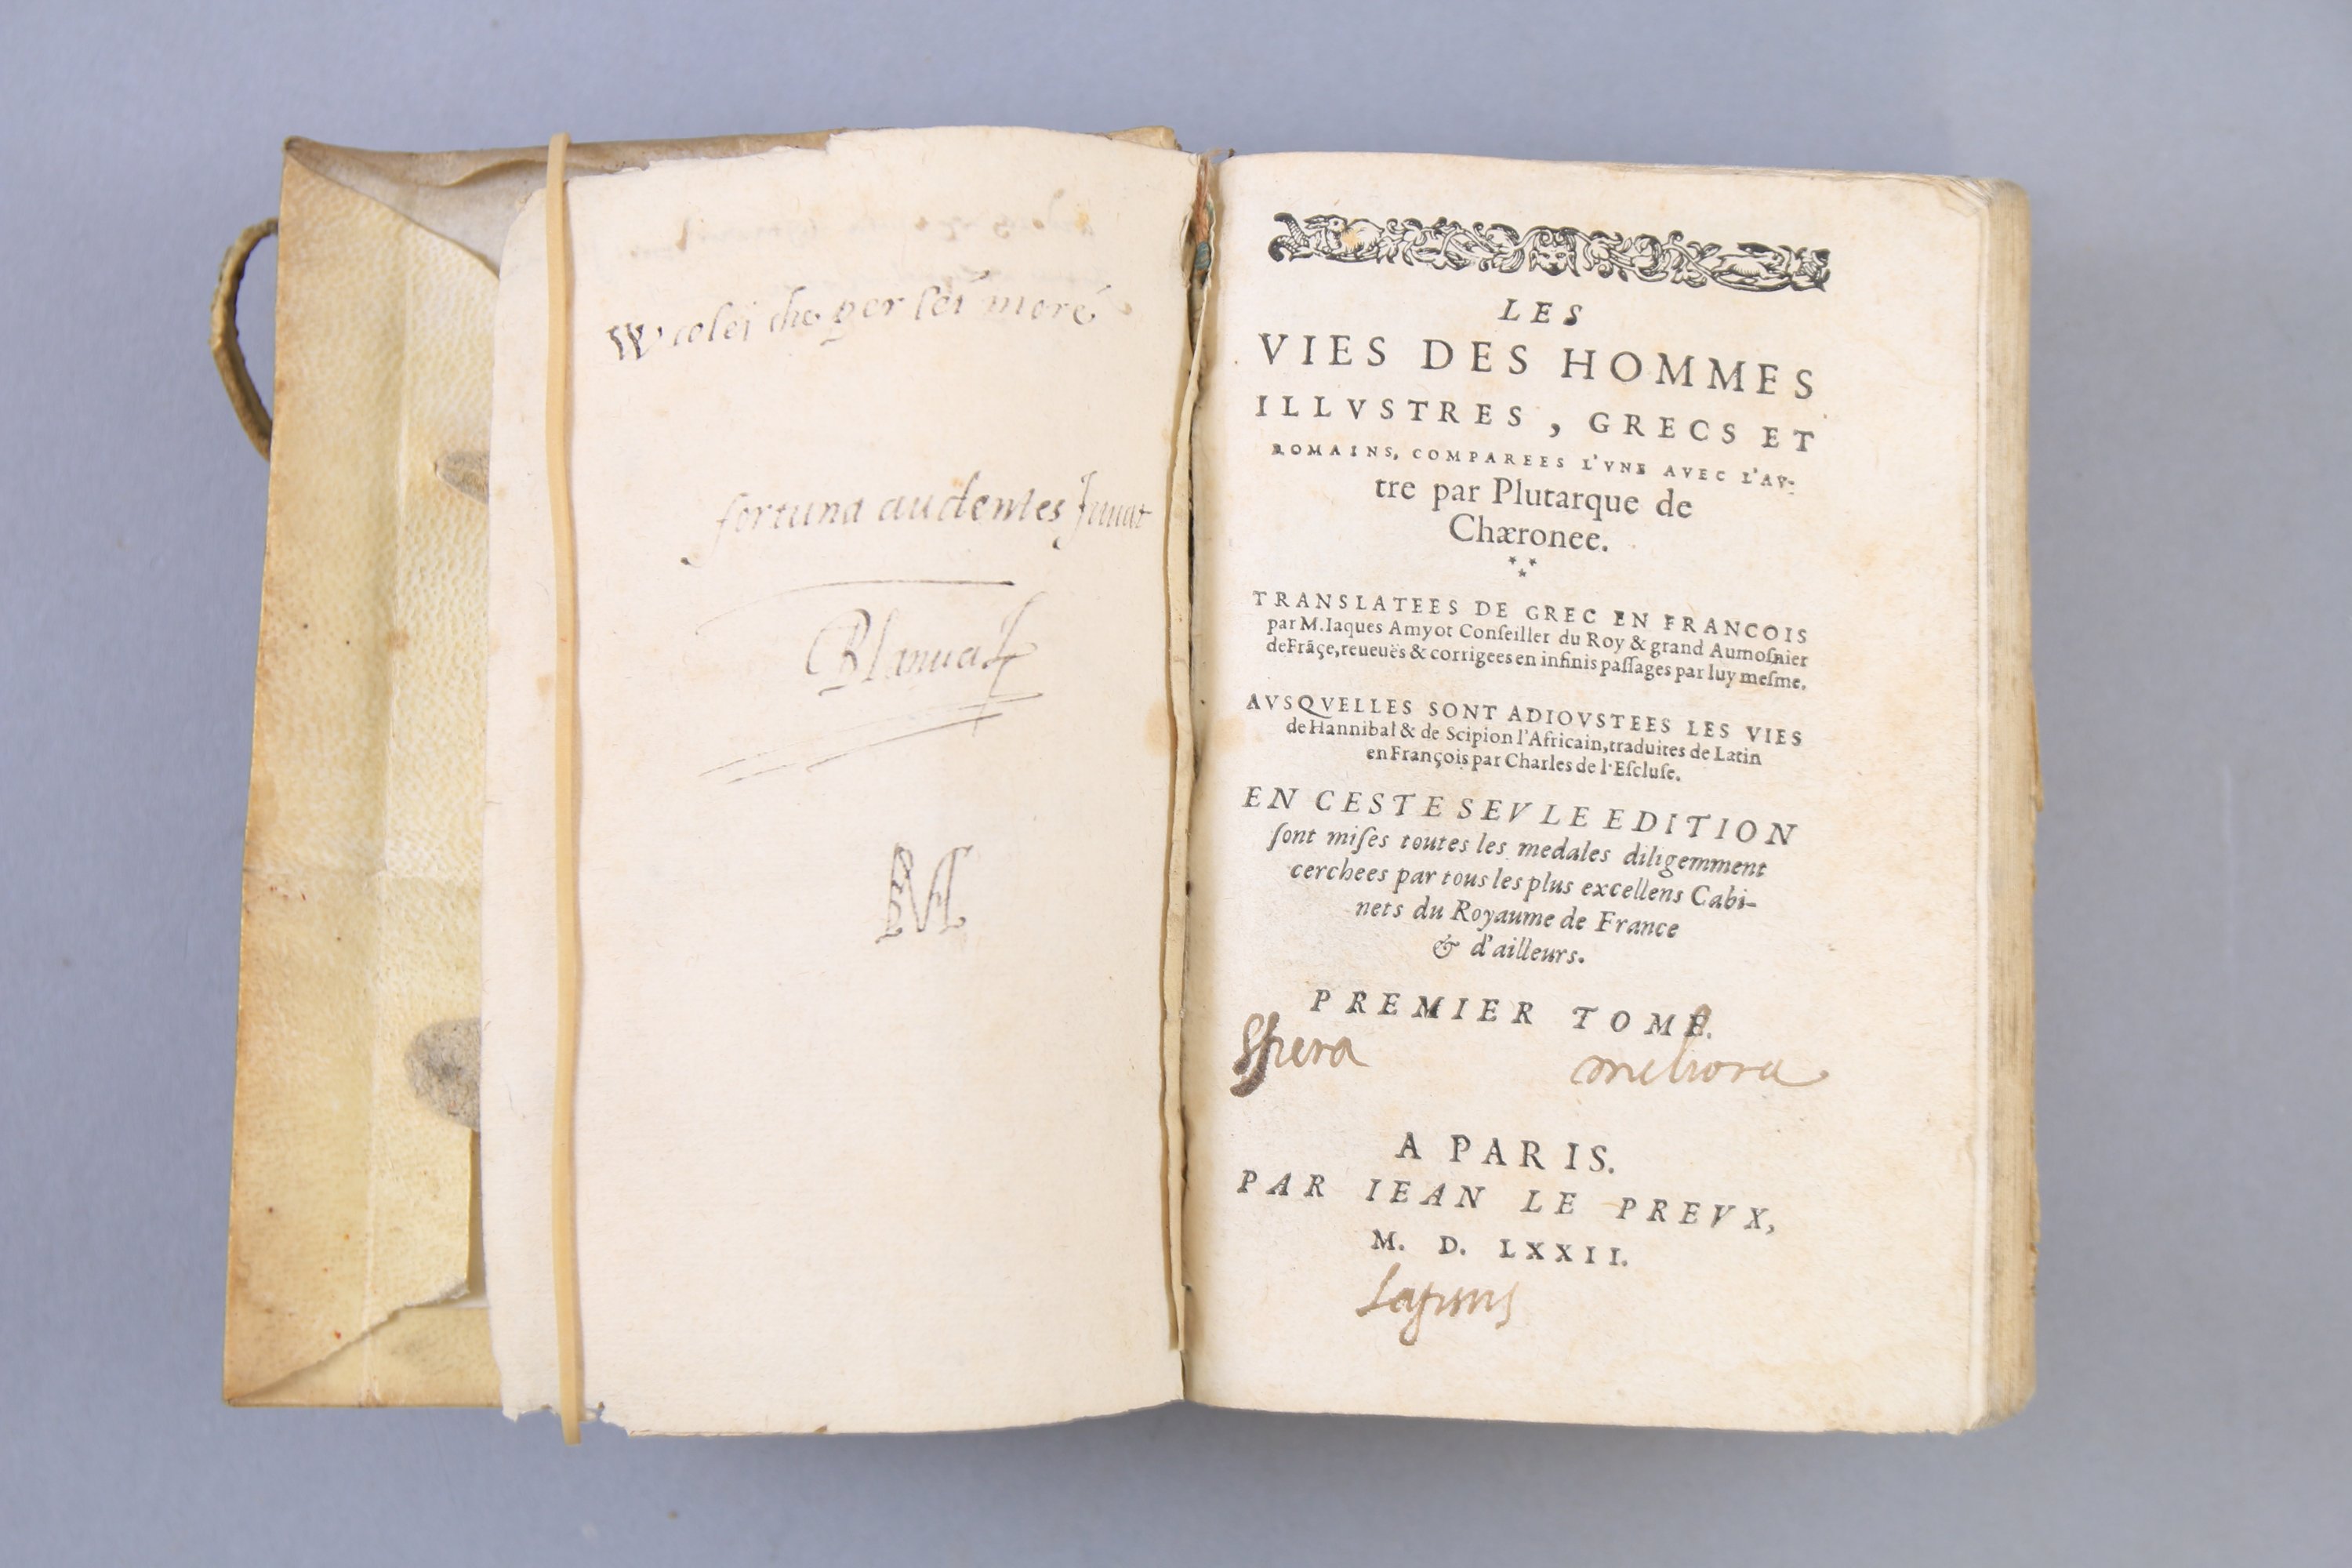 W colei che per lei moré
fortuna audentes Juuat
Blanualt
M
LES
VIES DES HOMMES
ILLVSTRES, GRECS ET
ROMAINS, COMPAREES L'VNE AVEC L'AV-
tre par Plutarque de
Chæronee.
TRANSLATEES DE GREC EN FRANCOIS
par M. Iaques Amyot Conſeiller du Roy & grand Aumoſnier
de Frãçe, reueuës & corrigees en infinis paſſages par luy meſme.
AVSQVELLES SONT ADIOVSTEES LES VIES
de Hannibal & de Scipion l'Africain, traduites de Latin
en François par Charles de l'Eſcluſe.
EN CESTE SEVLE EDITION
ſont miſes toutes les medales diligemment
cerchees par tous les plus excellens Cabi-
nets du Royaume de France
& d'ailleurs.
PREMIER TOME.
Spera meliora
A PARIS.
PAR IEAN LE PREVX,
M. D. LXXII.